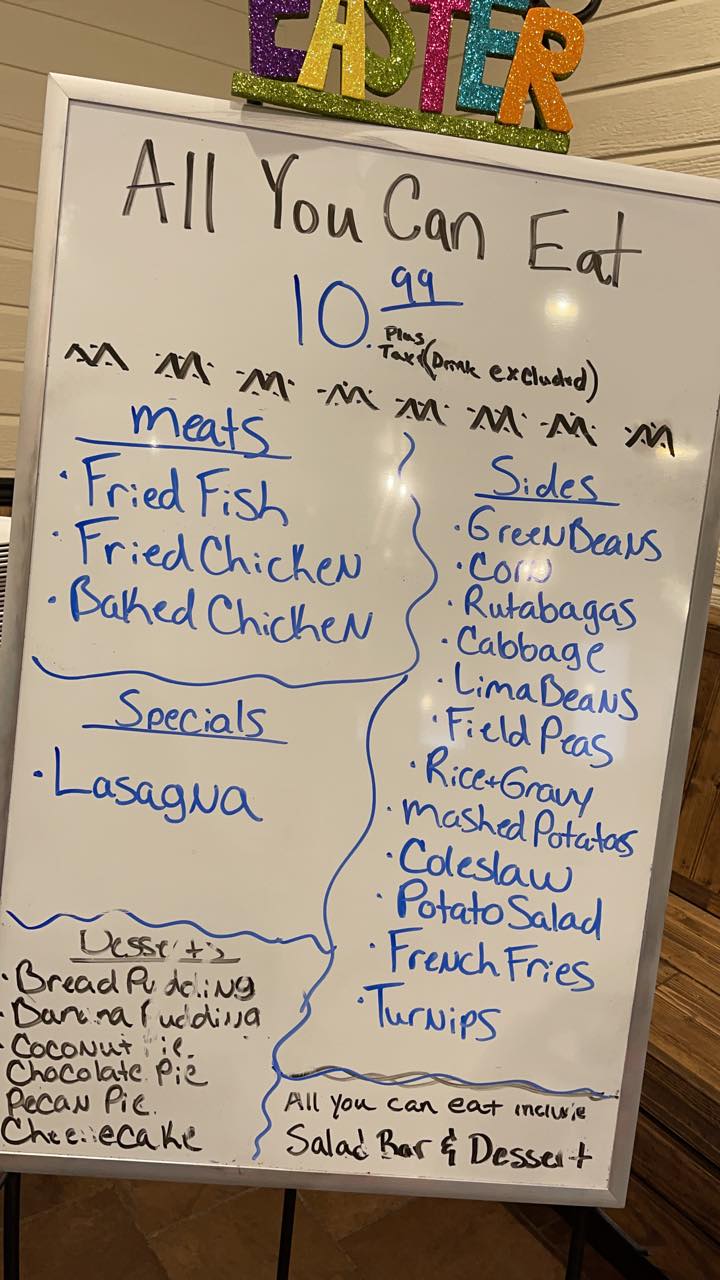 EASTER
All You Can Eat
10.99
Plus
Tax (Drink excluded)
Meats
· Fried Fish
· Fried Chicken
· Baked Chicken
Specials
· Lasagna
Sides
· Green Beans
· Corn
· Rutabagas
· Cabbage
· Lima Beans
· Field Peas
· Rice + Gravy
· Mashed Potatoes
· Coleslaw
· Potato Salad
· French Fries
· Turnips
Desserts
· Bread Pudding
· Banana Pudding
· Coconut Pie.
Chocolate Pie
Pecan Pie.
Cheesecake
All you can eat include
Salad Bar & Dessert